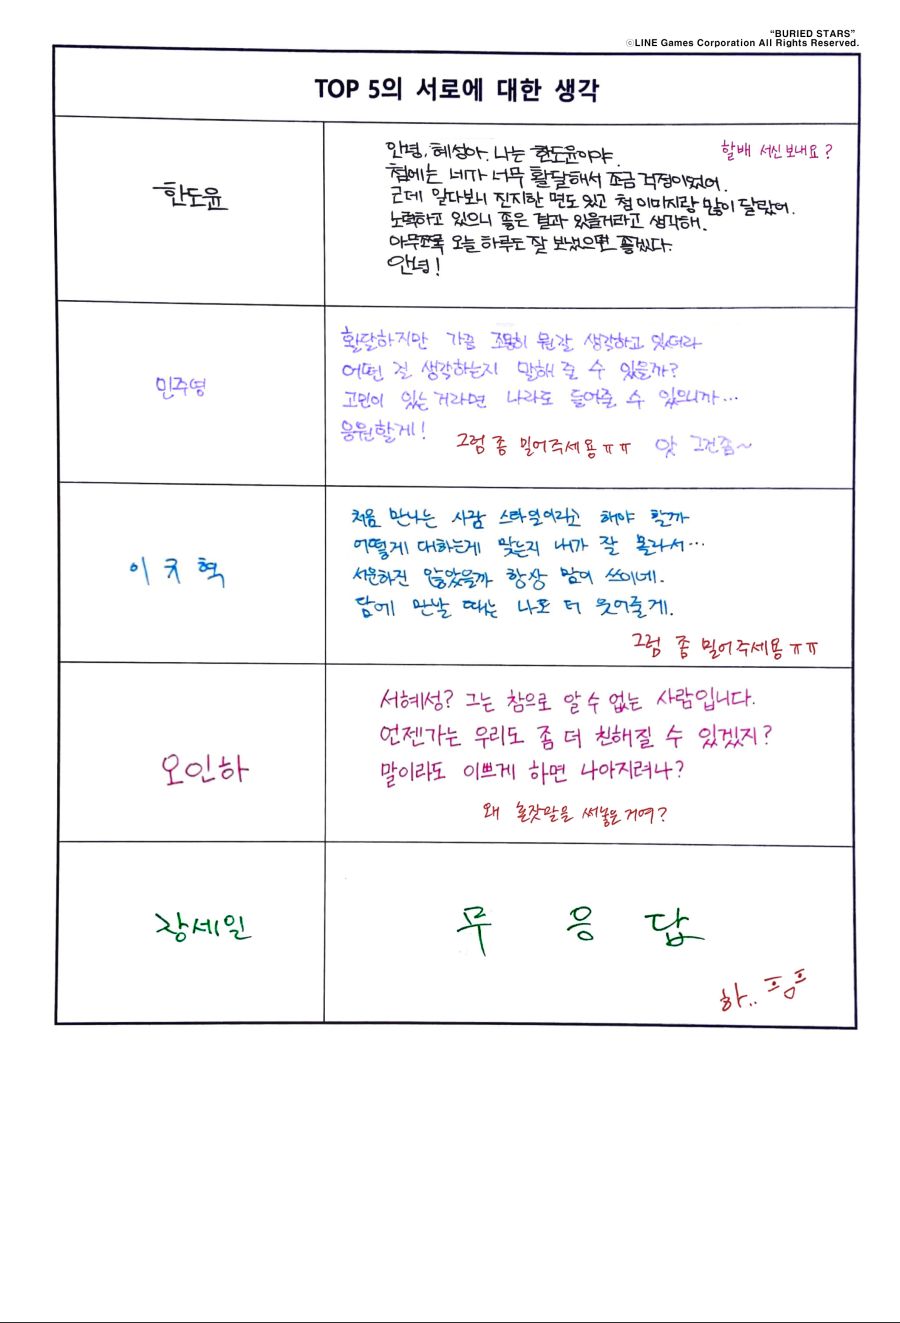 “BURIED STARS”
ⓒLINE Games Corporation All Rights Reserved.
TOP 5의 서로에 대한 생각
한도윤
안녕, 혜성아. 나는 한도윤이야.
할배 서신 보내요?
첨에는 네가 너무 활달해서 조금 걱정이었어.
근데 알다보니 진지한 면도 있고 첨 이미지랑 많이 달랐어.
노력하고 있으니 좋은 결과 있을거라고 생각해.
아무쪼록 오늘 하루도 잘 보냈으면 좋겠다.
안녕!
민주영
활달하지만 가끔 조용히 뭔갈 생각하고 있더라
어떤 걸 생각하는지 말해 줄 수 있을까?
고민이 있는 거라면 나라도 들어줄 수 있으니까…
응원할게!
그럼 좀 밀어주세용ㅠㅠ 앗 그건좀~
이규혁
처음 만나는 사람 스타일이라고 해야 할까
어떻게 대하는게 맞는지 내가 잘 몰라서…
서운하진 않았을까 항상 맘이 쓰이네.
담에 만날 때는 나도 더 웃어줄게.
그럼 좀 밀어주세용ㅠㅠ
오인하
서혜성? 그는 참으로 알 수 없는 사람입니다.
언젠가는 우리도 좀 더 친해질 수 있겠지?
말이라도 이쁘게 하면 나아지려나?
왜 혼잣말을 써놓은거여?
장세일
무 응 답
하.. 프ㅇ프